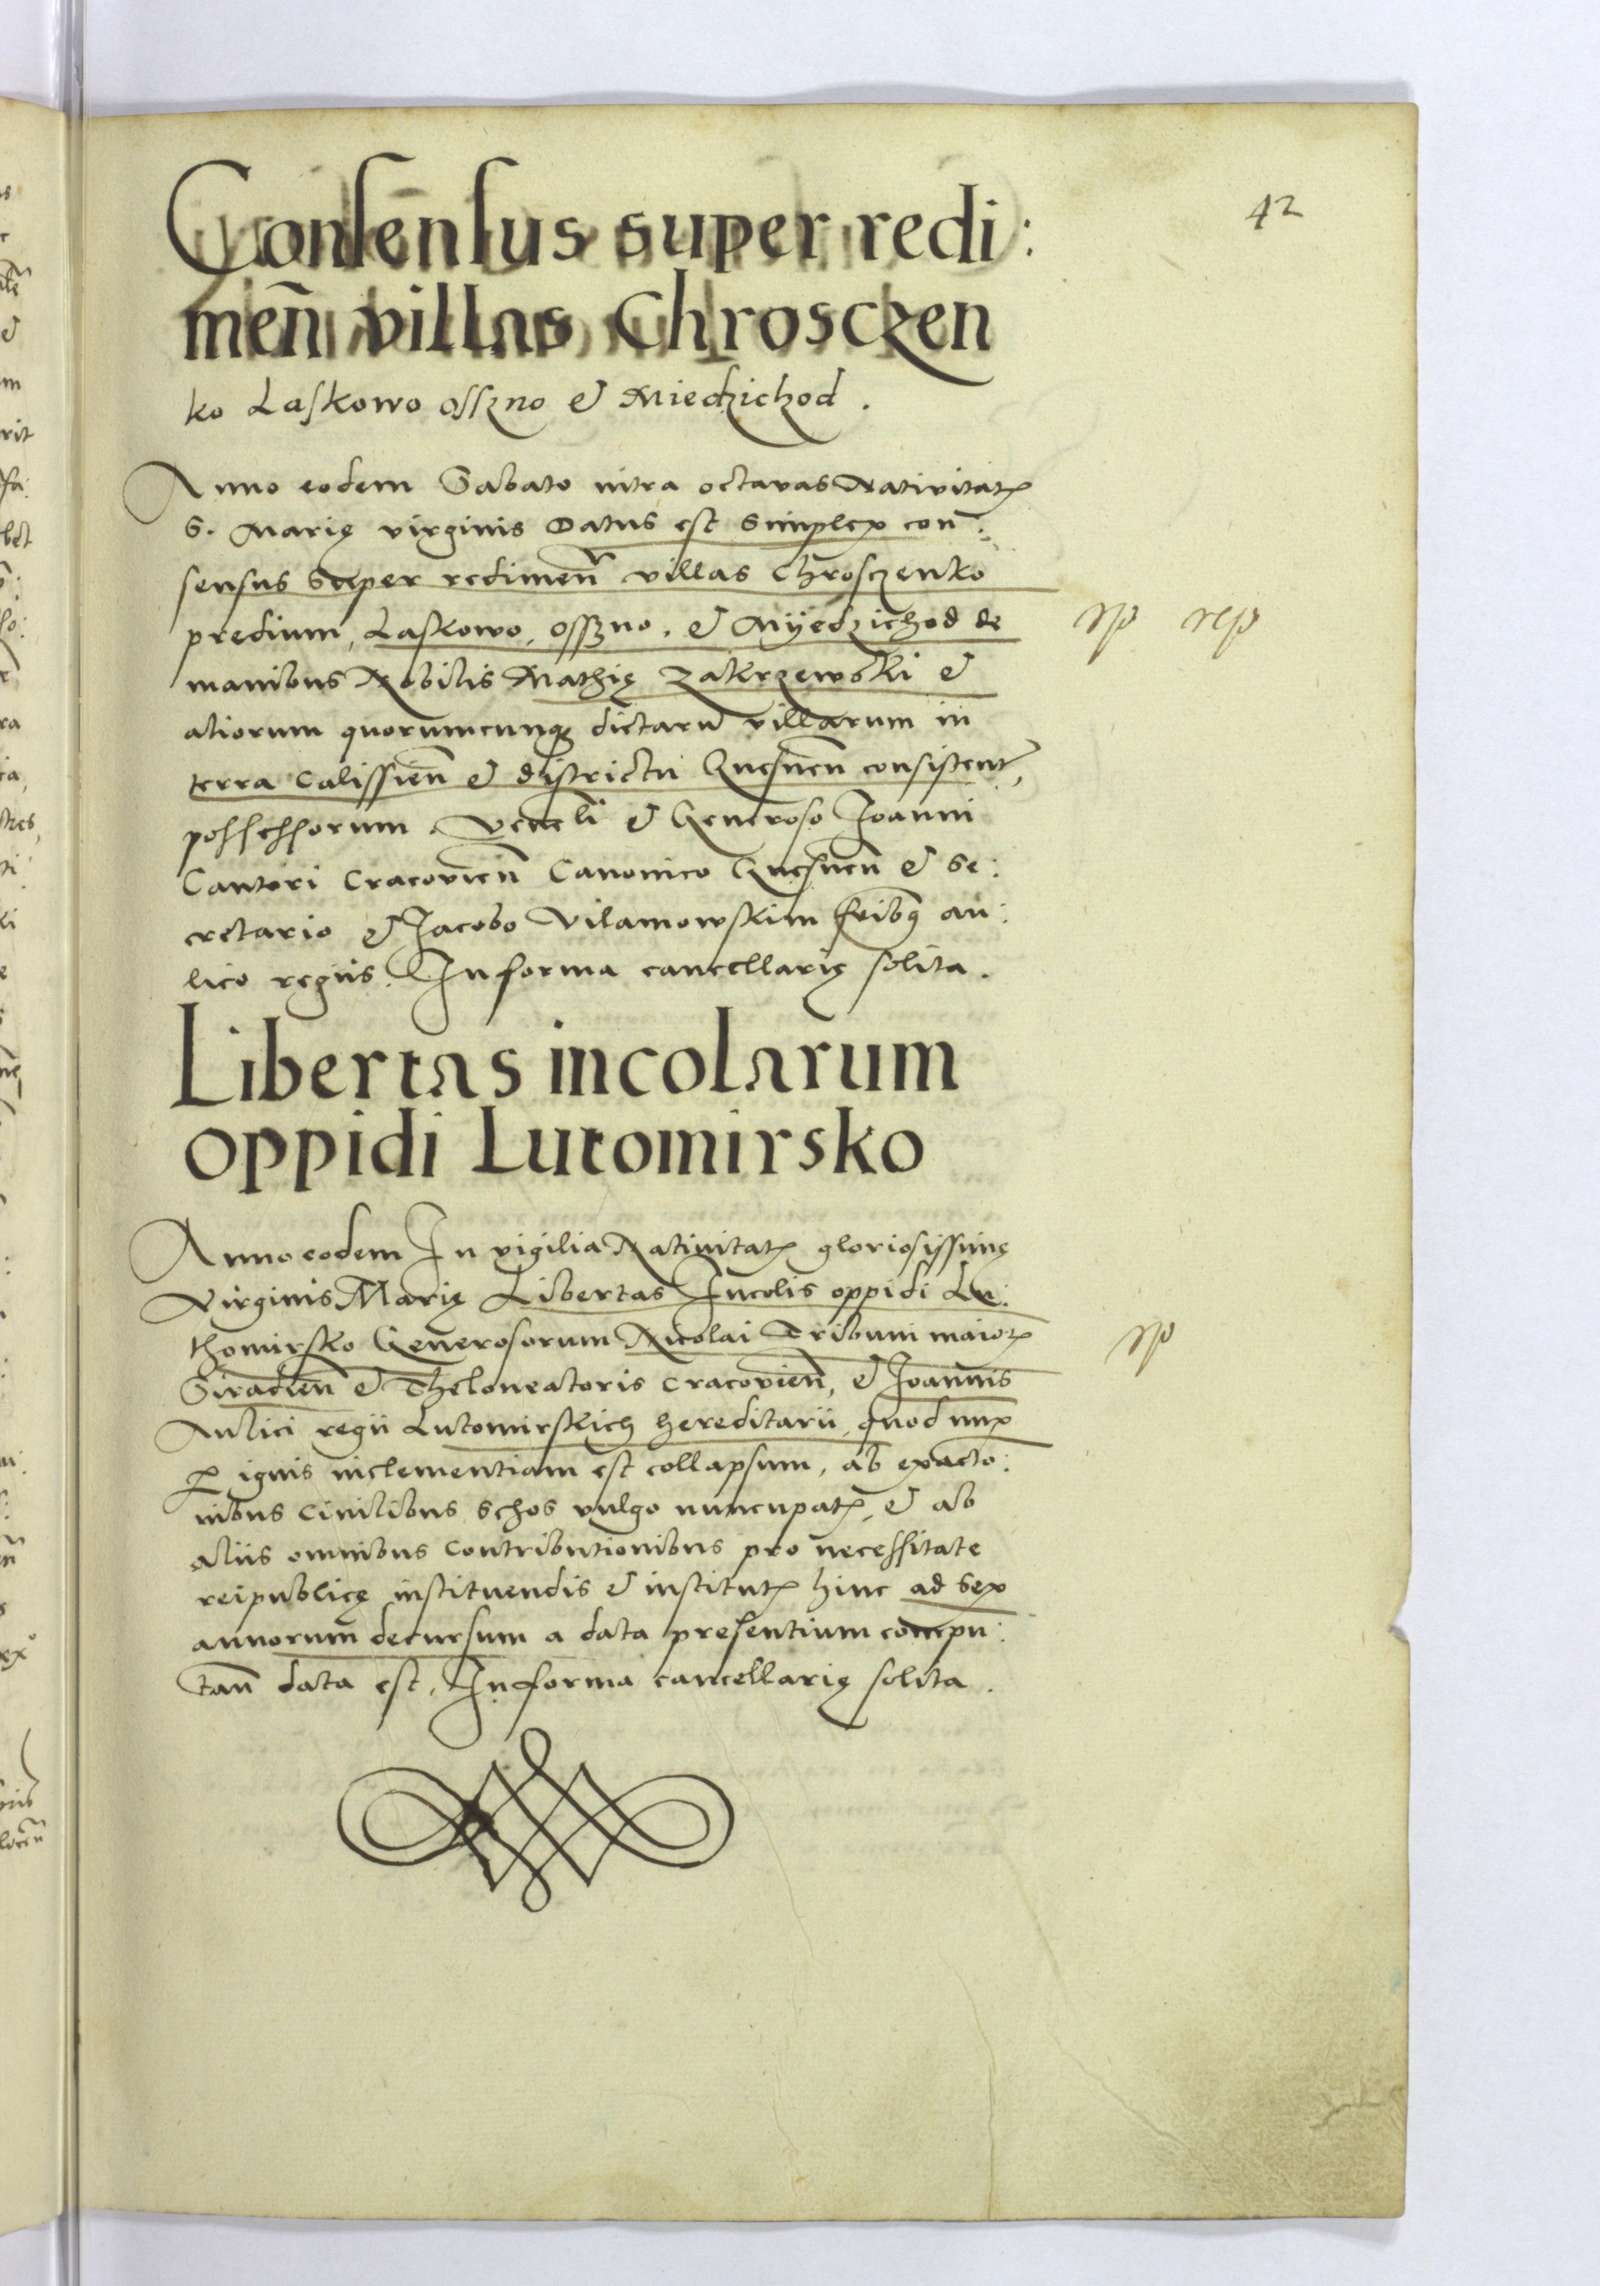 42
Consensus super redi:
meñ villas Chrosczen
ko Laskowo Osszno & Miedzichod.
Anno eodem Sabato intra octavas Nativitatꝭ
S. Marię virginis Datus est simplex con:
sensus super redimeñ villas Chrosczenko
predium, Laskowo, Osszno, & Myedzichod de
manibus Nobilis Mathię Zakrzewski &
aliorum quorumcunqꝫ dictarũ villarum in
terra Calissieñ & districtu Gnesneñ consistent,
possessorum Veneli & Generoso Joanni
Cantori Cracovieñ Canonico Gnesneñ & Se:
cretario & Jacobo Vilamowskim fribꝰ au:
lico regiis. In forma cancellarię solita.
Libertas incolarum
oppidi Lutomirsko
Anno eodem In vigilia Nativitatꝭ gloriosissimę
Virginis Marię Libertas Incolis oppidi Lu:
thomirsko Generosorum Nicolai Tribuni maiorꝭ
Siradieñ & Theloneatoris Cracovieñ, & Joannis
Aulici regii Lutomirskich hereditarii, quod nup
ꝑ ignis inclementiam est collapsum, ab exactio:
nibus Civilibus Schos vulgo nuncupatꝭ, & ab
aliis omnibus Contributionibus pro necessitate
reipublicę instituendis & institutꝭ hinc ad sex
annorum decursum a data presentium compu:
tañ data est, In forma cancellarię solita.